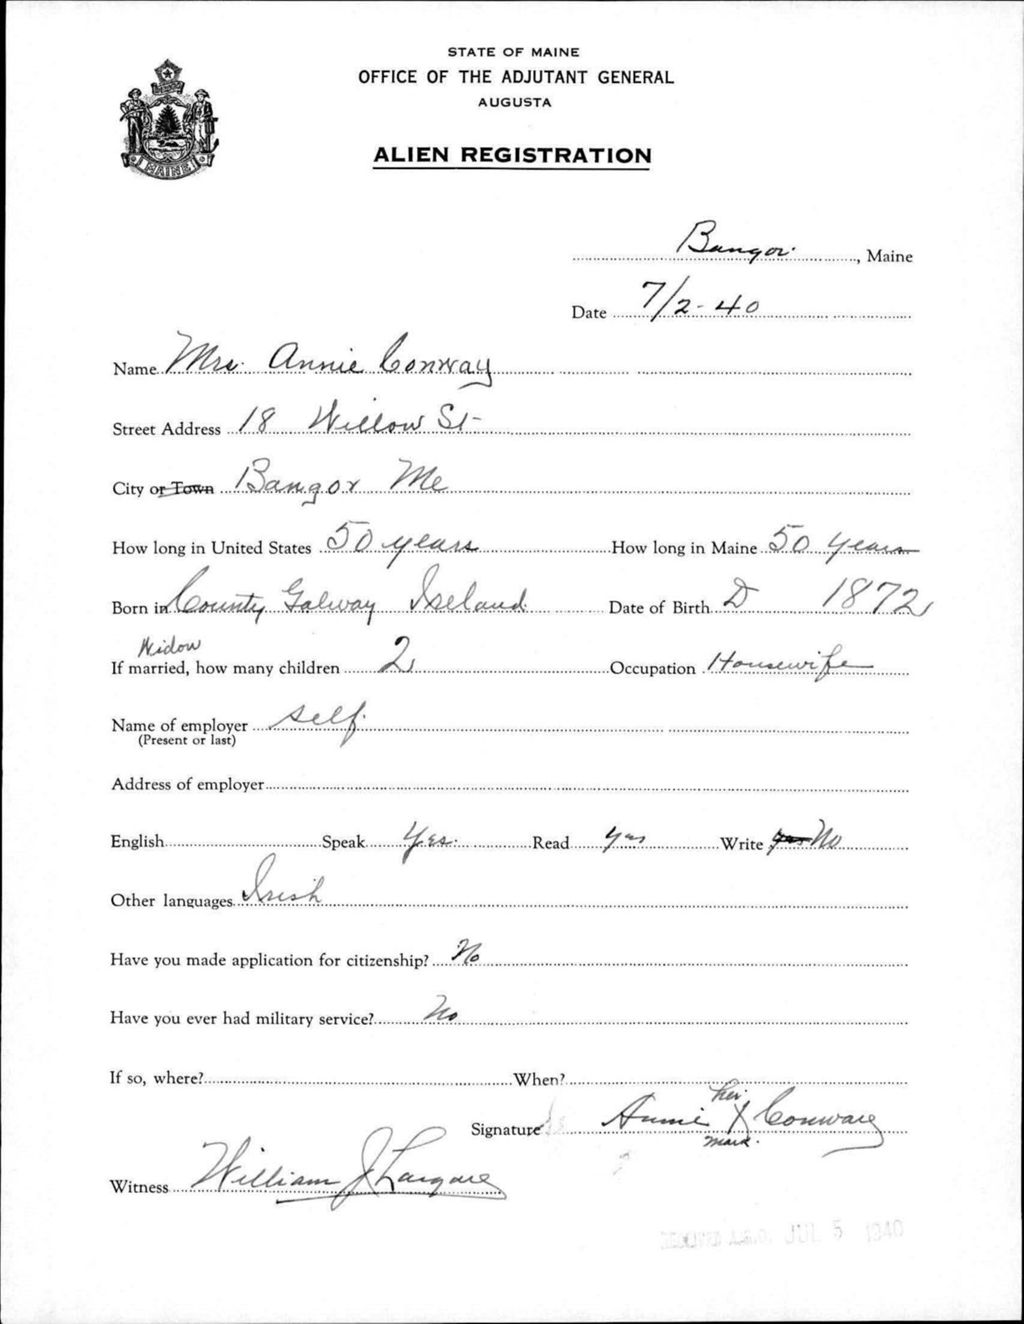 STATE OF MAINE
OFFICE OF THE ADJUTANT GENERAL
AUGUSTA
ALIEN REGISTRATION
MAINE
Bangor, Maine
Date 7/2-40
Name Mrs. Annie Conway
Street Address 18 Willow St-
City or Town Bangor Me
How long in United States 50 years How long in Maine 50 years
Born in County Galway Ireland Date of Birth D 1872
Widow
If married, how many children 2 Occupation Housewife
Name of employer self.
(Present or last)
Address of employer
English Speak Yes. Read yes Write yes No
Other languages Irish
Have you made application for citizenship? No
Have you ever had military service? No
If so, where? When?
her
Signature Annie X Conway
mark.
Witness William J
RECEIVED A.G.O. JUL 5 1940